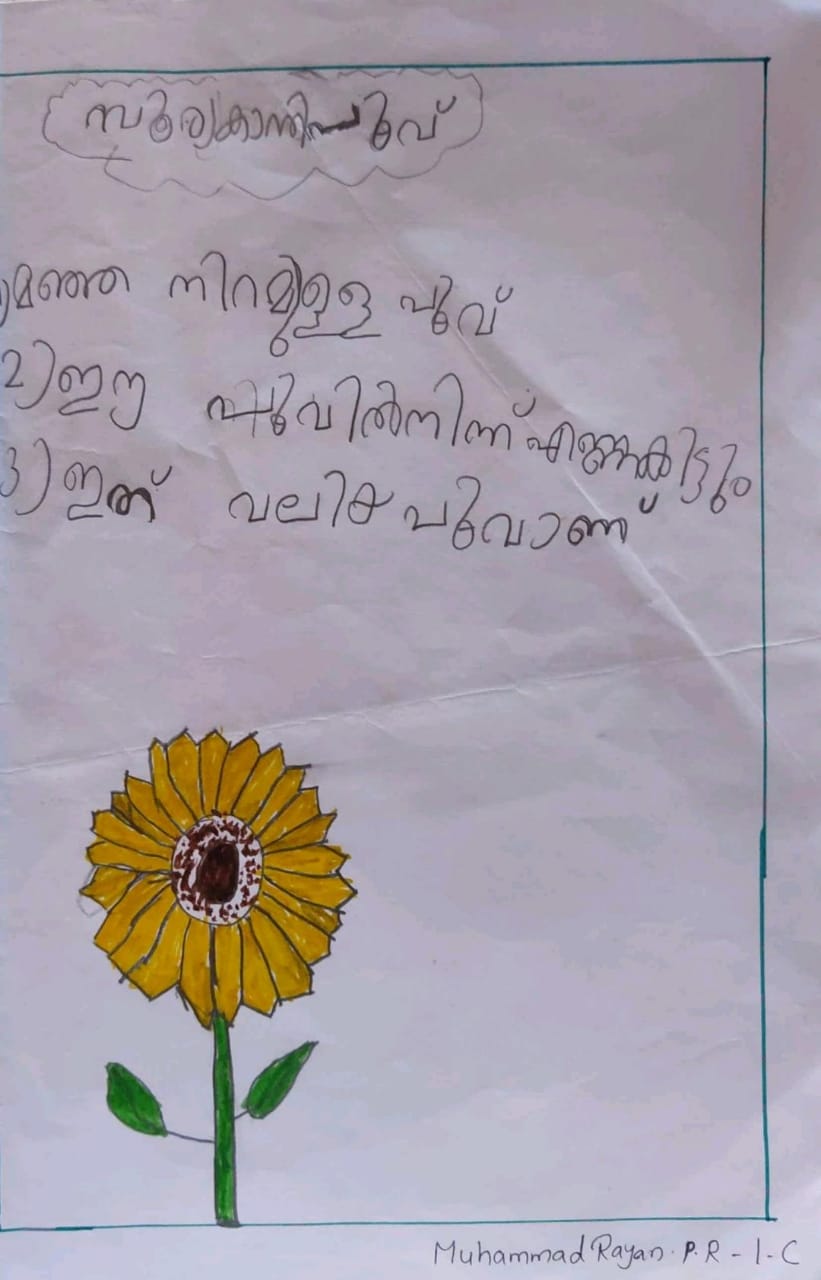 സൂര്യകാന്തിപ്പൂവ്
)മഞ്ഞ നിറമുള്ള പൂവ്
2)ഈ പൂവിൽനിന്ന് എണ്ണകിട്ടും
3)ഇത് വലിയ പൂവാണ്
Muhammad Rayan. P.R - 1 - C